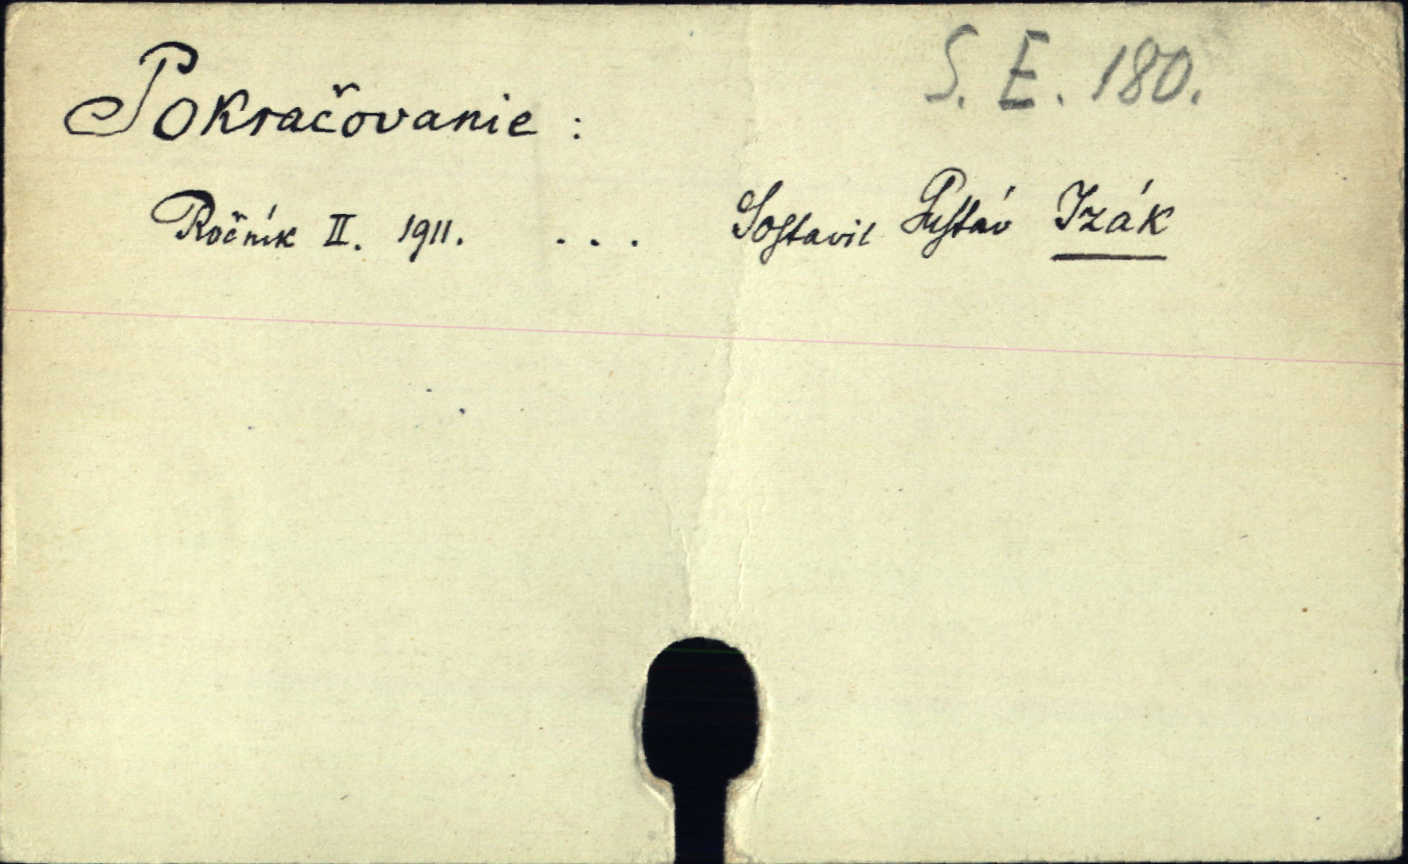 S. E. 180.
Pokračovanie :
Ročník II. 1911. . . . Sostavil Gustáv Izák